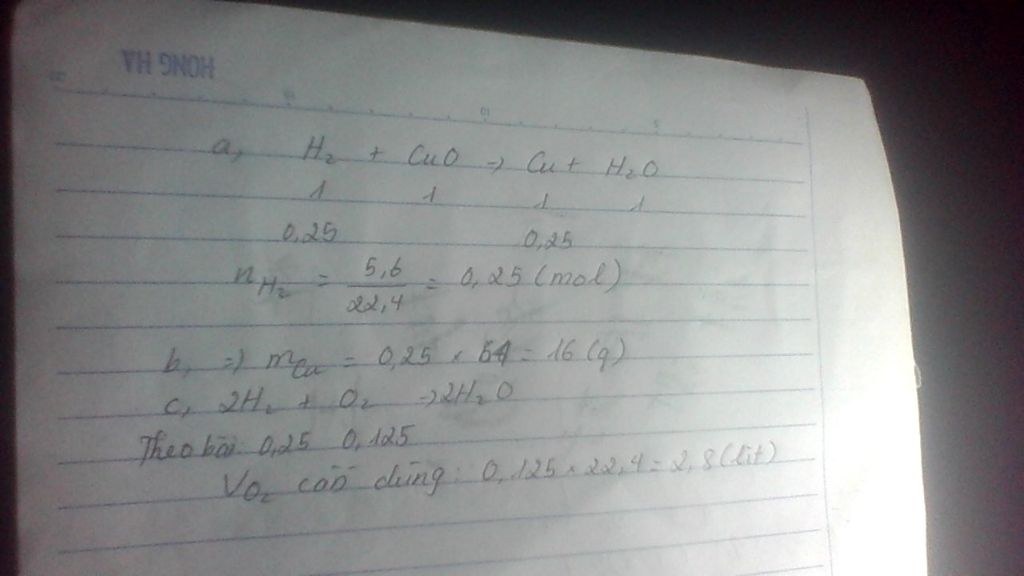 HONG HA
a, H₂ + CuO => Cu + H₂O
1 1 1 1
0,25 0,25
n H₂ = 5,6/22,4 = 0,25 (mol)
b, => m Cu = 0,25 × 64 = 16 (g)
c, 2H₂ + O₂ -> 2H₂O
Theo bài: 0,25 0,125
V O₂ cần dùng: 0,125 × 22,4 = 2,8 (lít)